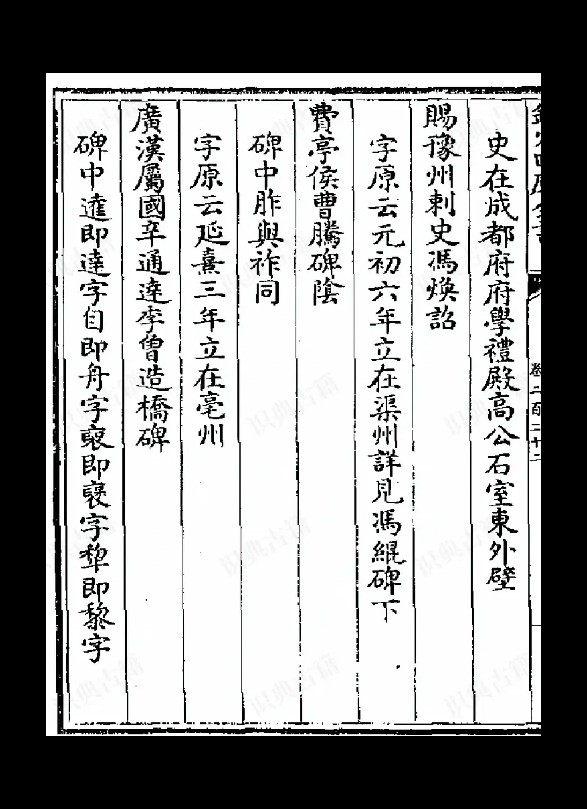 史在成都府府學禮殿髙公石室東外壁
賜豫州刺史馮煥詔
字原云元初六年立在渠州詳見馮緄碑下
費亭侯曹騰碑陰
碑中胙與祚同
字原云延熹三年立在亳州
廣漢屬國辛通達李曾造橋碑
碑中達即達字目即舟字裦即襃字犂即黎字